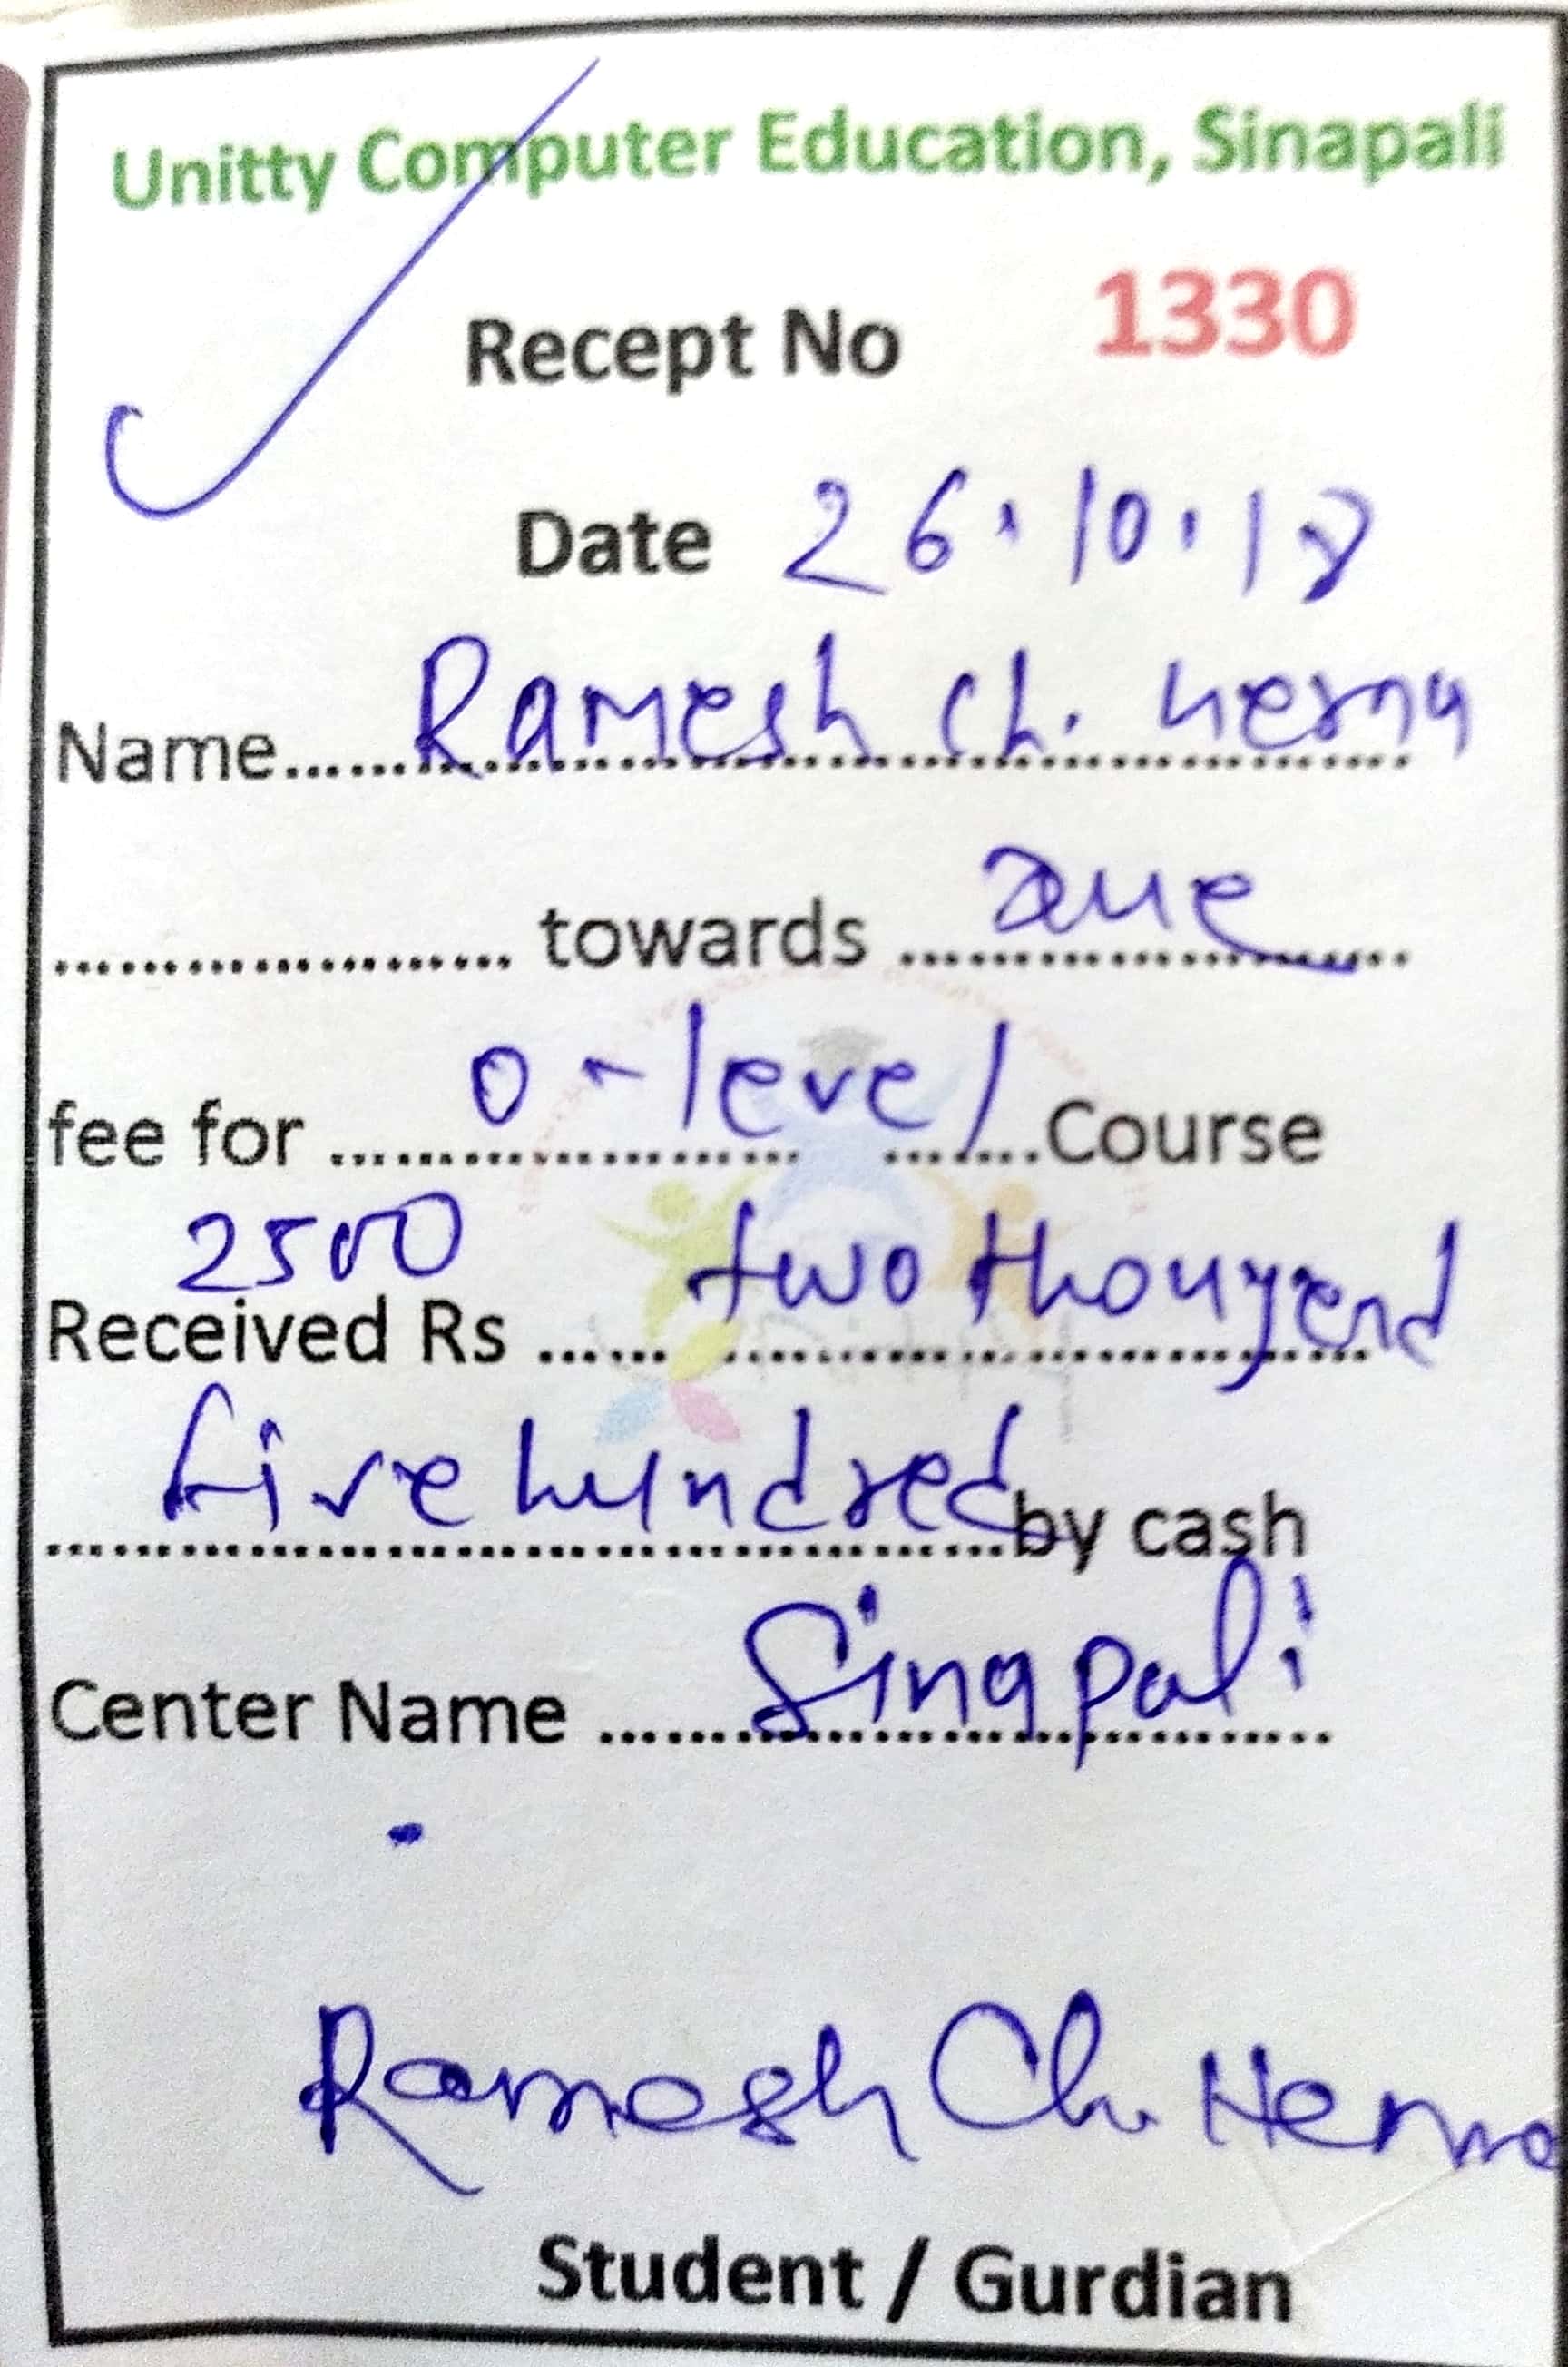 Unitty Computer Education, Sinapali
Recept No 1330
Date 26.10.18
Name...... Ramesh Ch. Herna
...................... towards ...... due ......
fee for ...... O-level ......Course
2500
Received Rs ...... two thouyend
five hundred by cash
Center Name ...... Sinapali
Ramesh Ch. Herna
Student / Gurdian